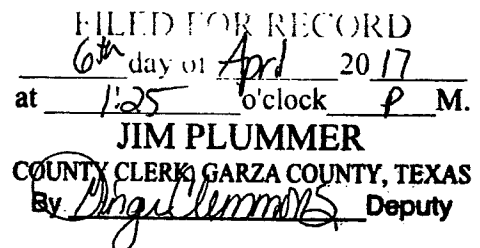 FILED FOR RECORD
6th day of April 2017
at 1:25 o'clock P M.
JIM PLUMMER
COUNTY CLERK, GARZA COUNTY, TEXAS
By Clemmons Deputy